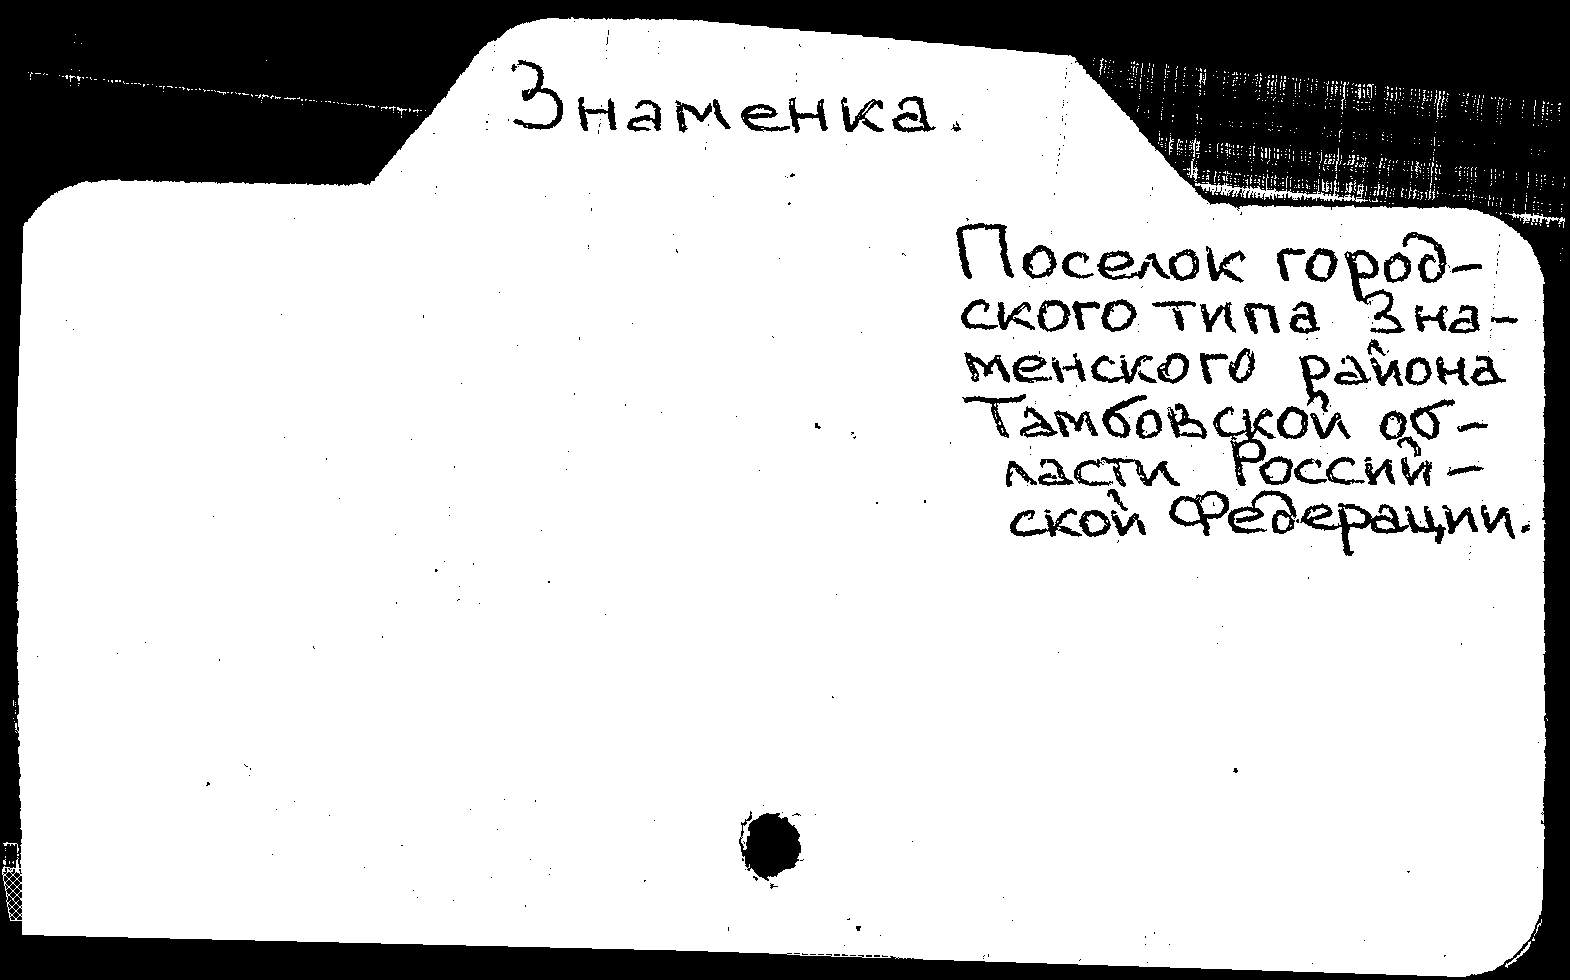 Знаменка.
Поселок город-
ского типа Зна-
менского района
Тамбовской об-
ласти Россий-
ской Федерации.